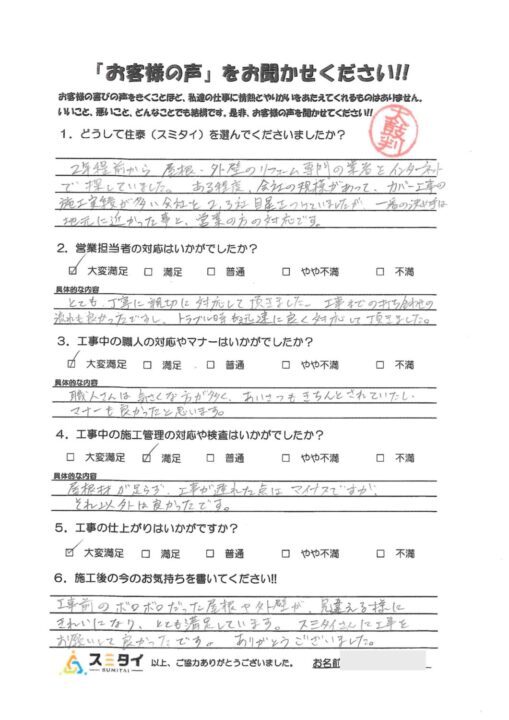 「お客様の声」をお聞かせください!!
お客様の喜びの声をきくことほど、私達の仕事に情熱とやりがいをあたえてくれるものはありません。
いいこと、悪いこと、どんなことでも結構です。是非、お客様の声をお聞かせください!!
太鼓判
1．どうして住泰（スミタイ）を選んでくださいましたか？
2年程前から 屋根・外壁のリフォーム専門の業者をインターネット
で探していました。 ある程度、会社の規模があって、カバー工事の
施工実績が多い会社を 2,3社目星をつけていましたが、一番の決め手は
地元に近かった事と、営業の方の対応です。
2．営業担当者の対応はいかがでしたか？
☑ 大変満足 □ 満足 □ 普通 □ やや不満 □ 不満
具体的な内容
とても、丁寧に親切に対応して頂きました。工事までの打ち合わせの
流れも良かったですし、トラブル時も迅速に良く対応して頂きました。
3．工事中の職人の対応やマナーはいかがでしたか？
☑ 大変満足 □ 満足 □ 普通 □ やや不満 □ 不満
具体的な内容
職人さんは気さくな方が多く、あいさつもきちんとされていたし、
マナーも良かったと思います。
4．工事中の施工管理の対応や検査はいかがでしたか？
□ 大変満足 ☑ 満足 □ 普通 □ やや不満 □ 不満
具体的な内容
屋根材が足らず、工事が遅れた点はマイナスですが、
それ以外は良かったです。
5．工事の仕上がりはいかがですか？
☑ 大変満足 □ 満足 □ 普通 □ やや不満 □ 不満
6．施工後の今のお気持ちを書いてください!!
工事前のボロボロだった屋根や外壁が、見違える様に
きれいになり、とても満足しています。 スミタイさんに工事を
お願いして良かったです。 ありがとうございました。
スミタイ SUMITAI 以上、ご協力ありがとうございました。 お名前